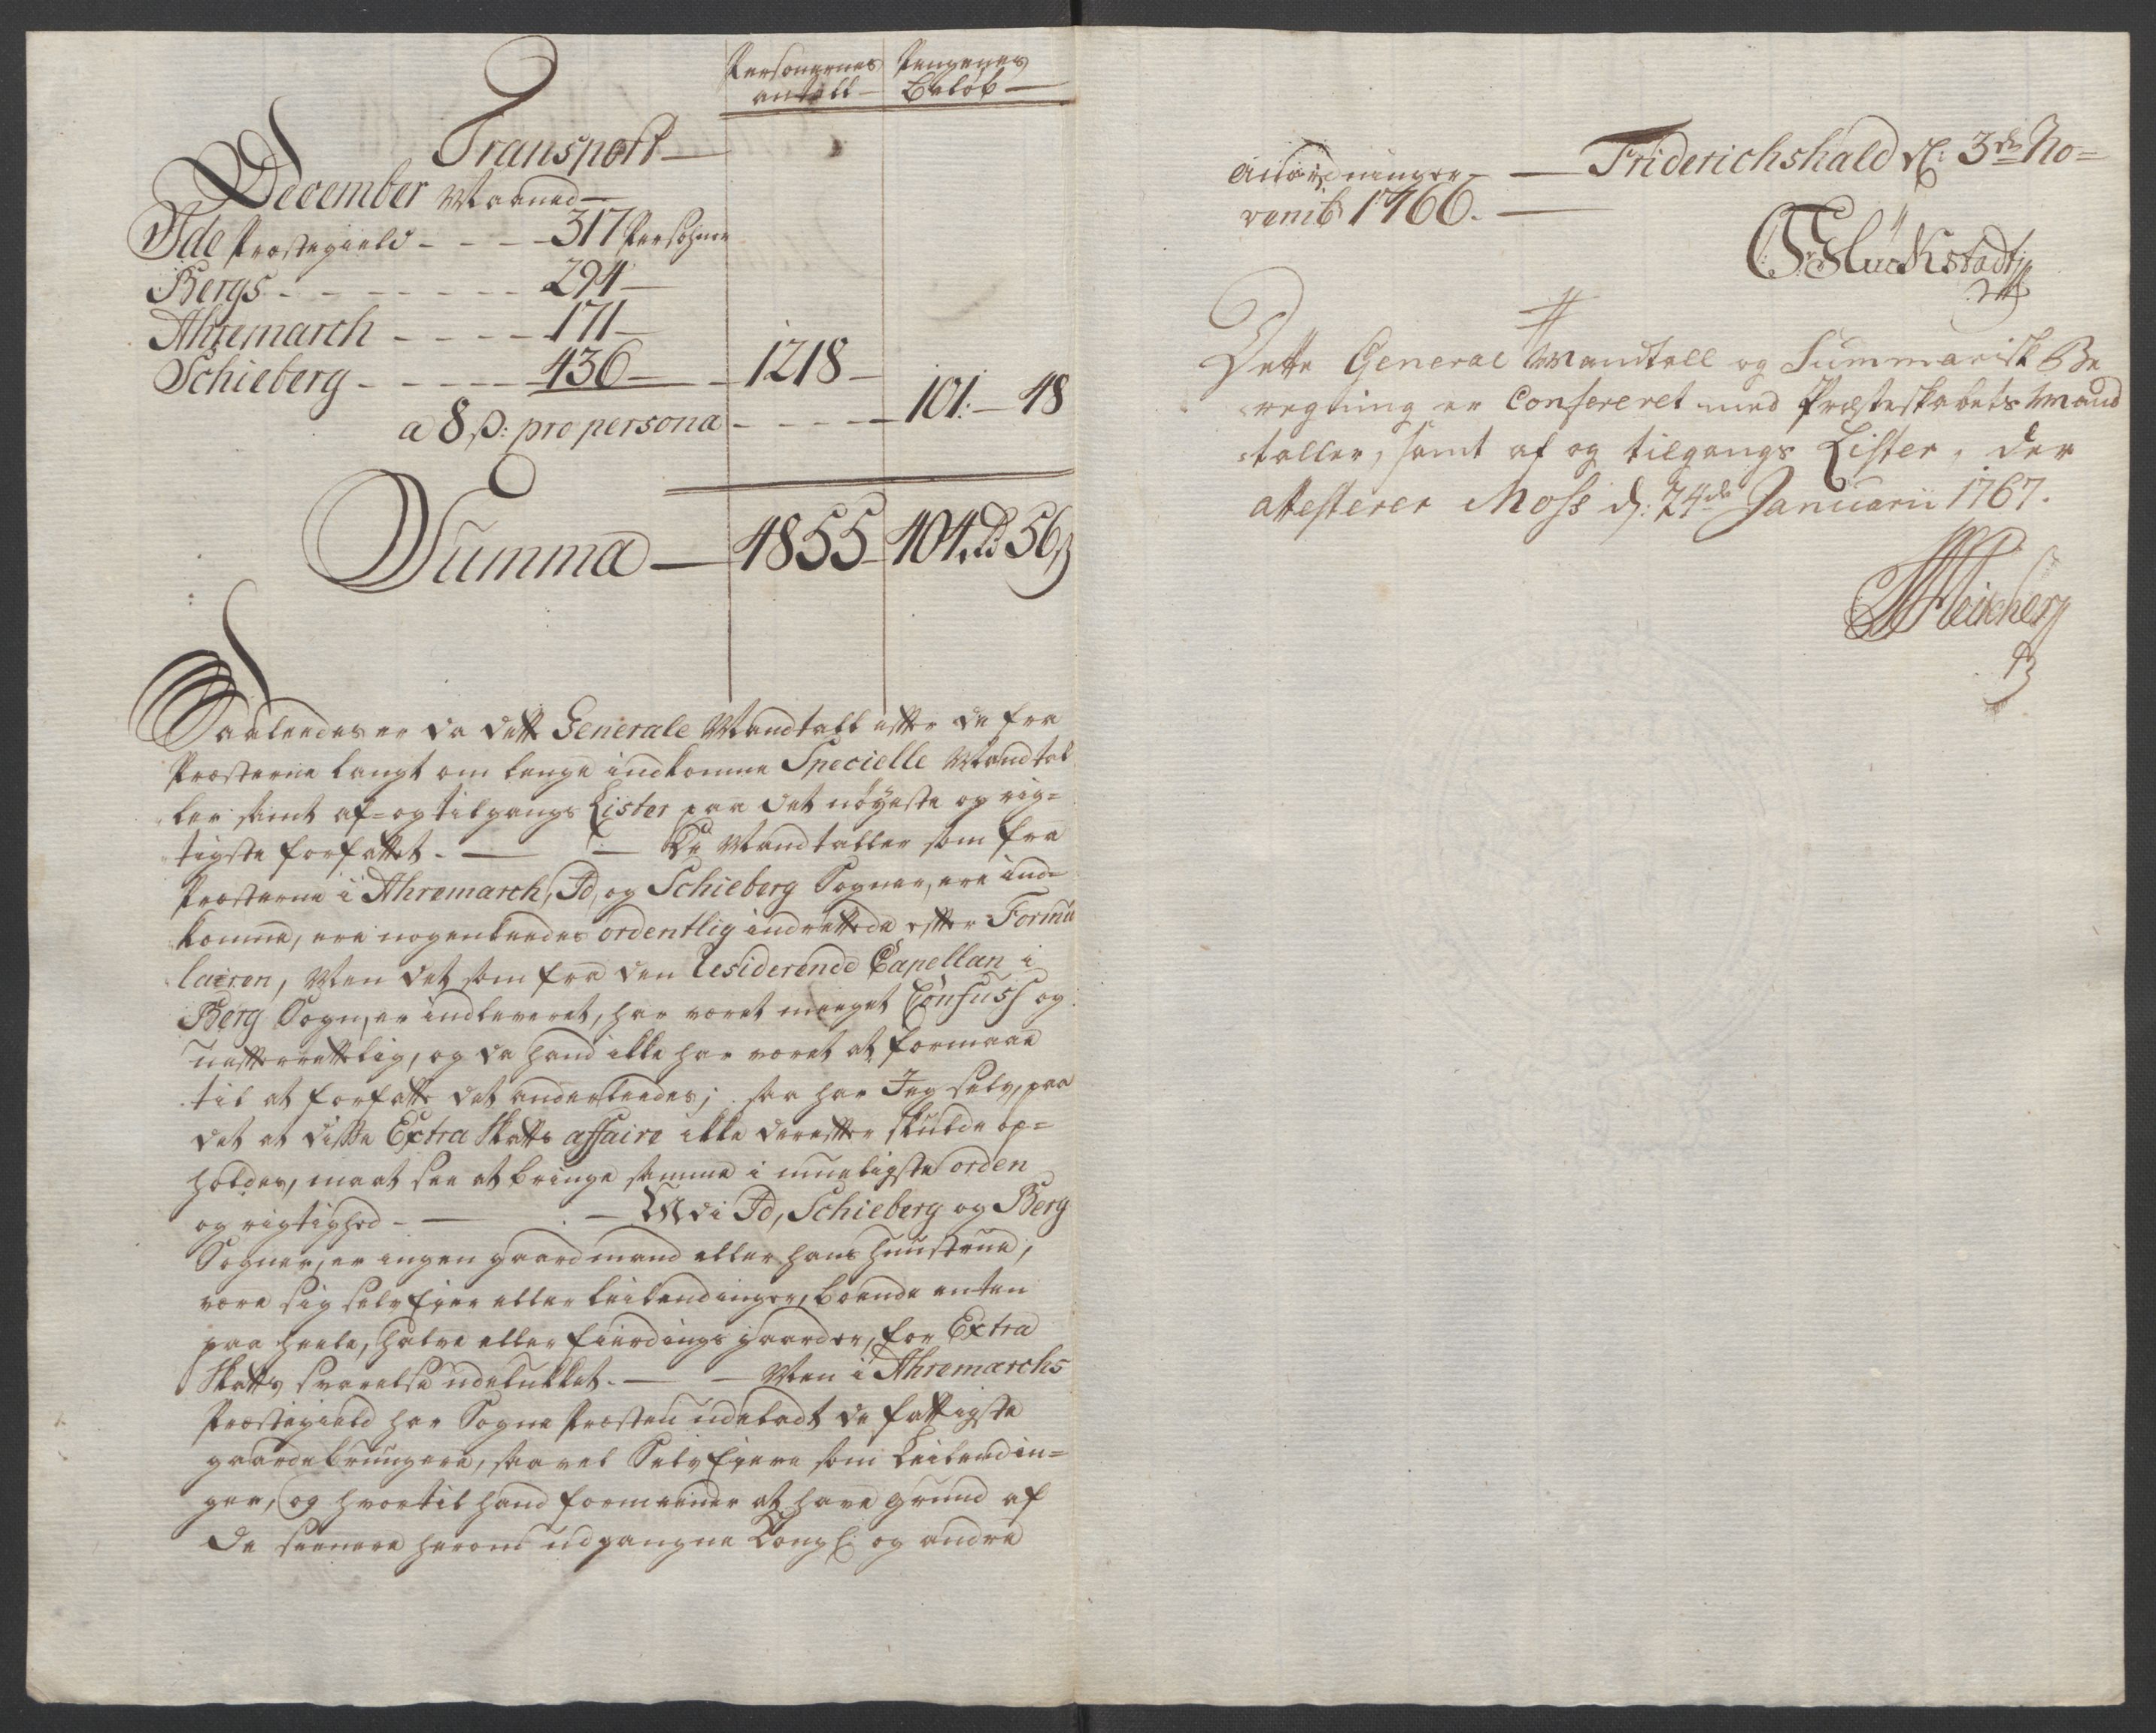 Personernes Pengenes
antall Beløb
Transport
December Maaned
Ide Præstegield - - - - 317 Persohner
Bergs - - - - - - - 294
Ahremarch - - - - 171
Schieberg - - - - - 436 - 1218
a 8 ß: pro persona - - - - - 101: 48
Summa 4855 404 rd 56 ß
Saaledes er da dette Generale Mandtall efter de fra
Præsterne langt om lenge indkomne Specielle Mandtal
ler samt af= og tilgangs Lister paa det nøyeste og rig=
tigste forfattet. De Mandtaller som fra
Præsterne i Ahremarch, Id, og Schieberg Sogner, ere ind=
komne, ere nogenleedes ordentlig indrettede efter Formu
lairen, Men det som fra den Residerende Capellan i
Berg Sogn, er indleveret, har været meeget Confuss og
uefterrettelig, og da hand ikke har været at formaae
til at forfatte det anderleedes; saa har Jeg selv, paa
det at disse Extra Skatts affaire ikke derefter skulde op=
holdes, maat see at bringe samme i mueligste orden
og rigtighed - Udi Id, Schieberg og Berg
Sogner, er ingen gaardmand eller hans huustrue,
være sig selv Eyer eller leilendinger, boende enten
paa heele, halve eller fierdings gaarder, for Extra
Skatts svarelse udelukket. Men i Ahremarchs
Præstegield har Sogne Præsten udeladt de fattigste
gaardebrugere, saavel Selv Eyere som Leilendin=
ger, og hvortil hand formeener at have grund af
de seenere herom udgangne Kongl: og andre
anordninger. Friderichshald d: 3de No=
vemb: 1766.
Glückstadt
Dette General Mandtall og Summarisk Be
regning er Confereret med Præsteskabets Mand
taller, samt af og tilgangs Lister, der
attesterer Moss d: 24de Januarii 1767.